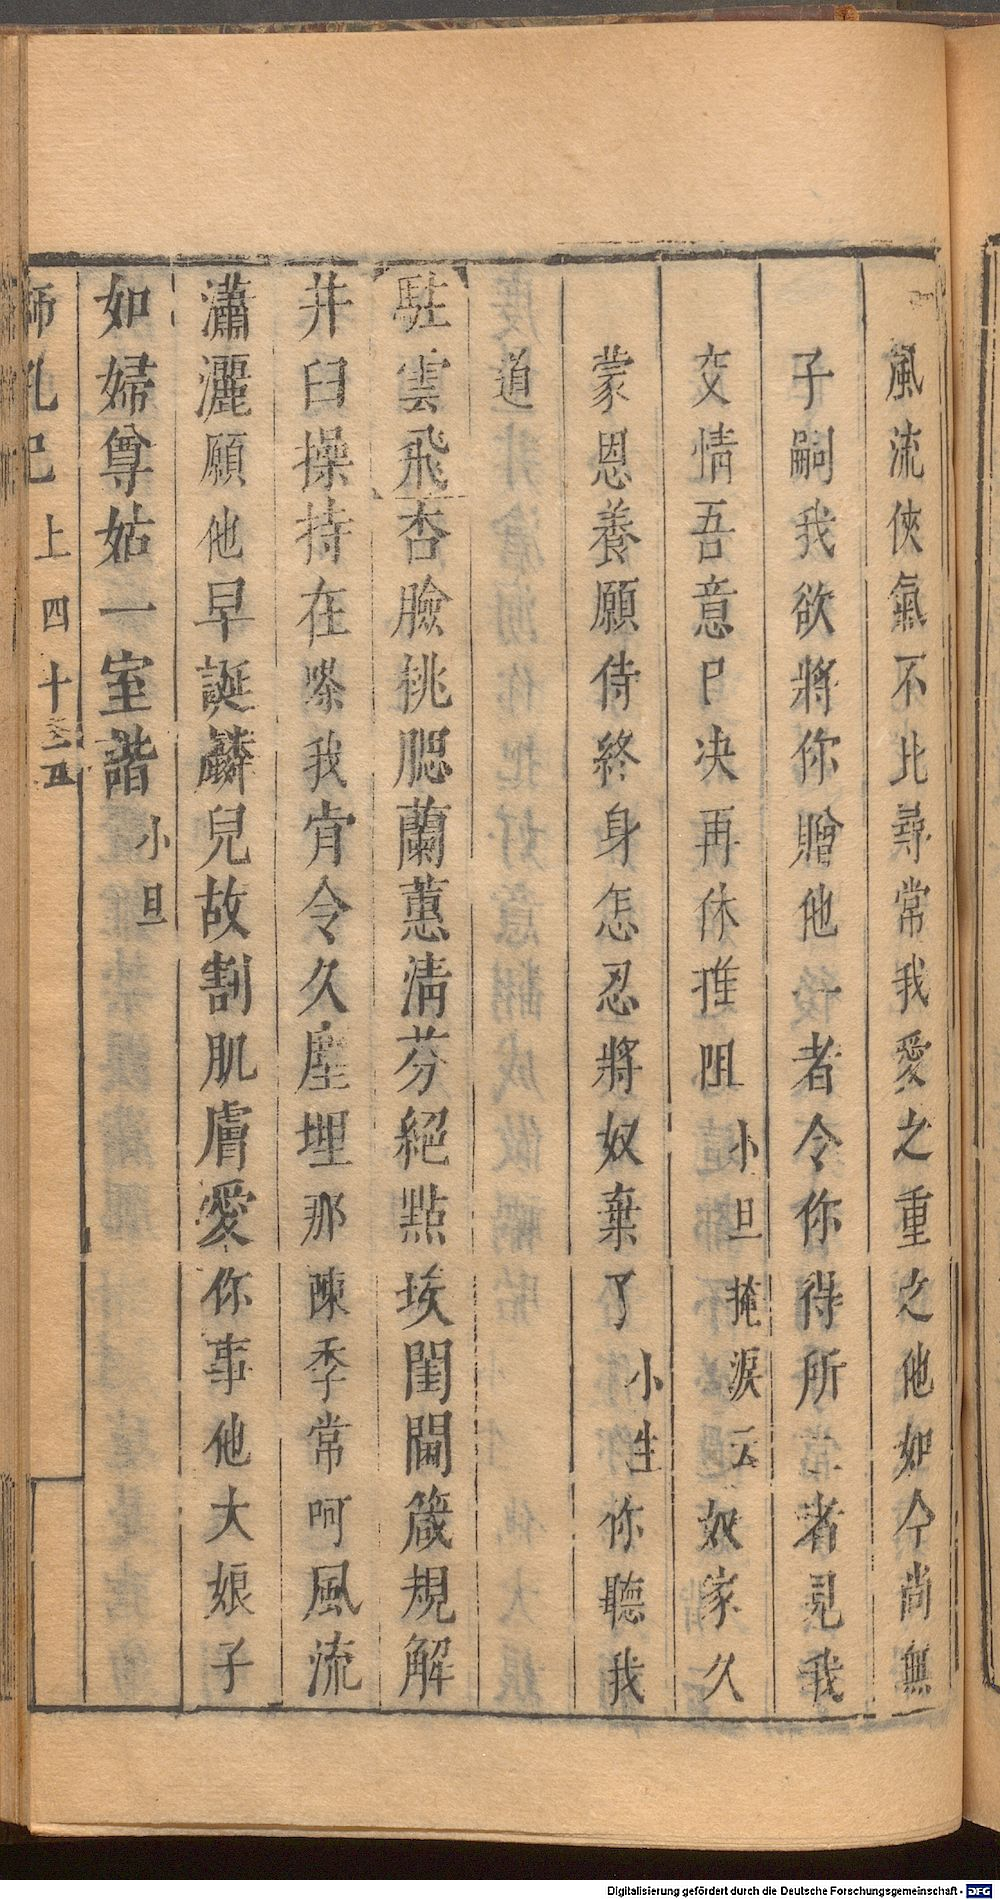 風流俠氣不比尋常我愛之重之他如今尚無
子嗣我欲將你贈他一者令你得所二者見我
交情吾意已决再休推阻小旦掩淚云奴家久
蒙恩養願侍終身怎忍將奴棄了小生你聽我
道
駐雲飛杏臉桃腮蘭蕙淸芬絕點埃閨閫箴規解
井臼操持在嗏我肯令久塵埋那陳季常呵風流
瀟灑願他早誕麟兒故割肌膚愛你事他大娘子
如婦尊姑一室諧小旦
師吼記上四十五
Digitalisierung gefördert durch die Deutsche Forschungsgemeinschaft - DFG